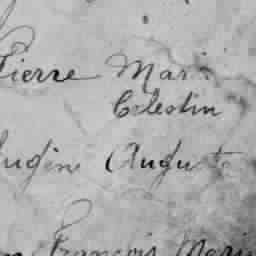 Pierre Marie
Celestin
Eugène Auguste
François Marie